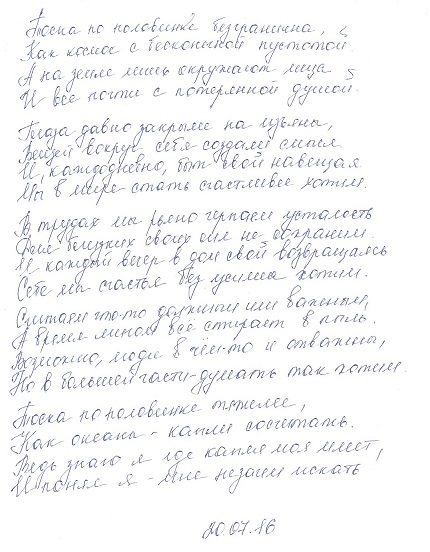 Тоска по половинке безгранична,
Как космос с бесконечной пустотой.
А на земле лишь окружают лица
И все почти с потерянной душой.
Глаза давно закрыли на изъяны,
Вещей вокруг себя создали смысл
И, каждодневно, быт свой навещая
Мы в мире стать счастливее хотим.
В трудах мы рьяно черпаем усталость
Для близких своих сил не сохраним.
И каждый вечер в дом свой возвращаясь
Себе мы счастья без усилий хотим.
Считаем что-то должным или важным,
А время мигом всё стирает в пыль.
Возможно, люди в чём-то и отважны,
Но в большей части - думать так хотим.
Тоска по половинке тяжелее,
Как океаны - капли сосчитать.
Ведь знаю я где капля моя
И понял я - мне незачем искать
20.07.16